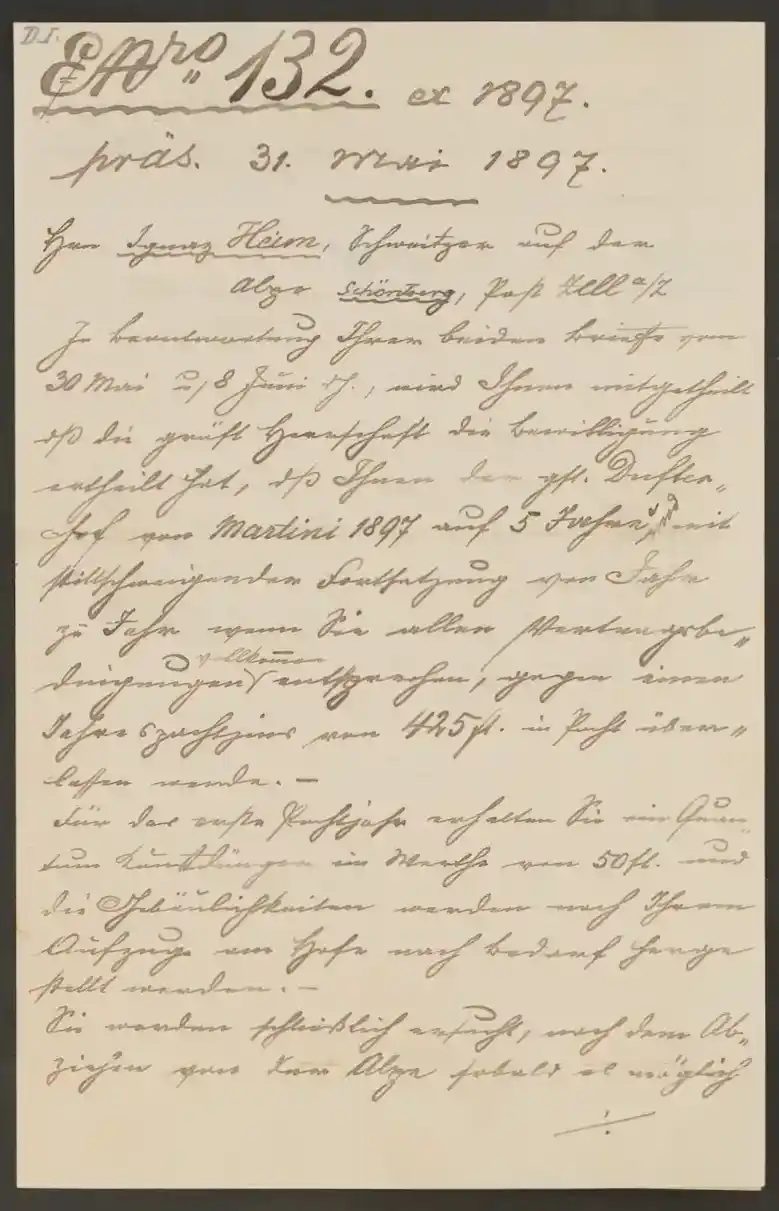 D.I.
ENro 132. ex 1897.
präs. 31. Mai 1897.
Hrn Ignaz Heim, Schweitzer auf der
Alpe Schönberg, Post Zell a/Z
In Beantwortung Ihrer beiden Briefe vom
30 Mai u, 8 Juni dJ., wird Ihnen mitgetheilt
dß die gräfl Herrschaft die Bewilligung
ertheilt hat, dß Ihnen der gfl.
hof von Martini 1897 auf 5 Jahre und mit
stillschweigender Fortsetzung von Jahr
zu Jahr wenn Sie allen Vertragsbe„
vollkommen
dingungen entsprechen, gegen einen
Jahrespachtzins von 425 fl. in Pacht über„
lassen werde. –
Für das erste Pachtjahr erhalten Sie ein Quan„
tum Kunstdünger im Werthe von 50 fl. und
die Gebäulichkeiten werden nach Ihrem
Aufzuge am Hofe nach Bedarf herge
stellt werden. –
Sie werden schließlich ersucht, nach dem Ab„
ziehen von der Alpe sobald es möglich
./.